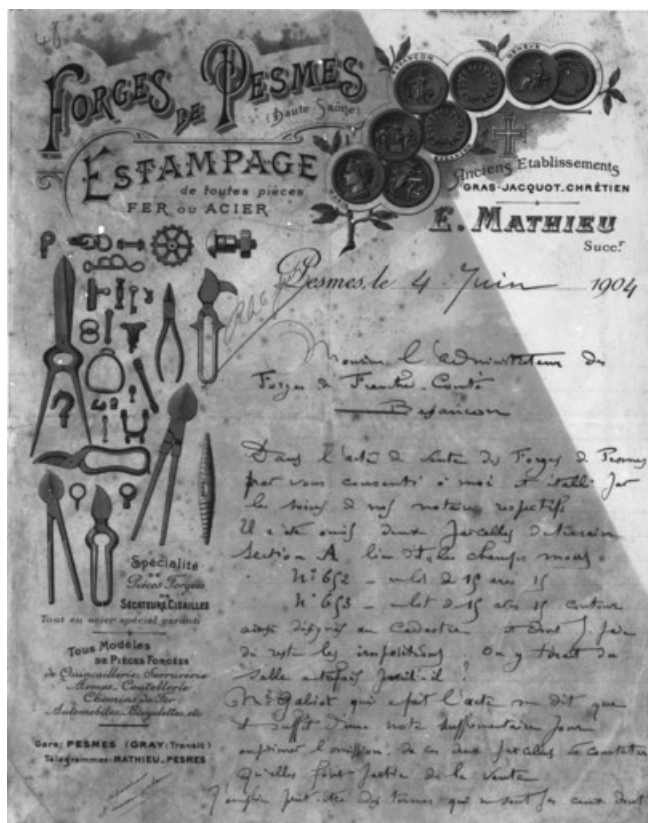 48
FORGES DE PESMES
(Haute-Saône)
ESTAMPAGE
de toutes pièces
FER ou ACIER
BESANÇON
GENÈVE
Anciens Etablissements
GRAS-JACQUOT.CHRÉTIEN
E. MATHIEU
Succ.r
Pesmes, le 4 Juin 1904
Monsieur l'administrateur des
Forges de Franche-Comté
Besançon
Dans l'acte de vente des Forges de Pesmes
par vous consenti à moi et établi par
les soins de nos notaires respectifs
Il a été omis deux parcelles de terrain
Section A, lieu dit, les champs
N° 652 – de 15 ares 15
N° 653 – de 15 ares 15
ainsi désignés au Cadastre et dont je
les impositions. On y tirait du
sable autrefois paraît-il ?
Me Galiot qui a fait l'acte me dit que
il suffit d'une note supplémentaire pour
l'omission de ces deux parcelles et constater
qu'elles font partie de la vente
J'emploie peut-être des termes qui ne sont pas ceux dont
Spécialité
DE
Pièces Forgées
DE
SÉCATEURS CISAILLES
Tout en acier spécial garanti
Tous Modèles
DE PIÈCES FORGÉES
de Quincaillerie, Serrurerie
Armes, Coutellerie
Chemins de Fer
Automobiles, Bicyclettes, etc.
Gare: PESMES (GRAY: Transit)
Télégrammes: MATHIEU, PESMES